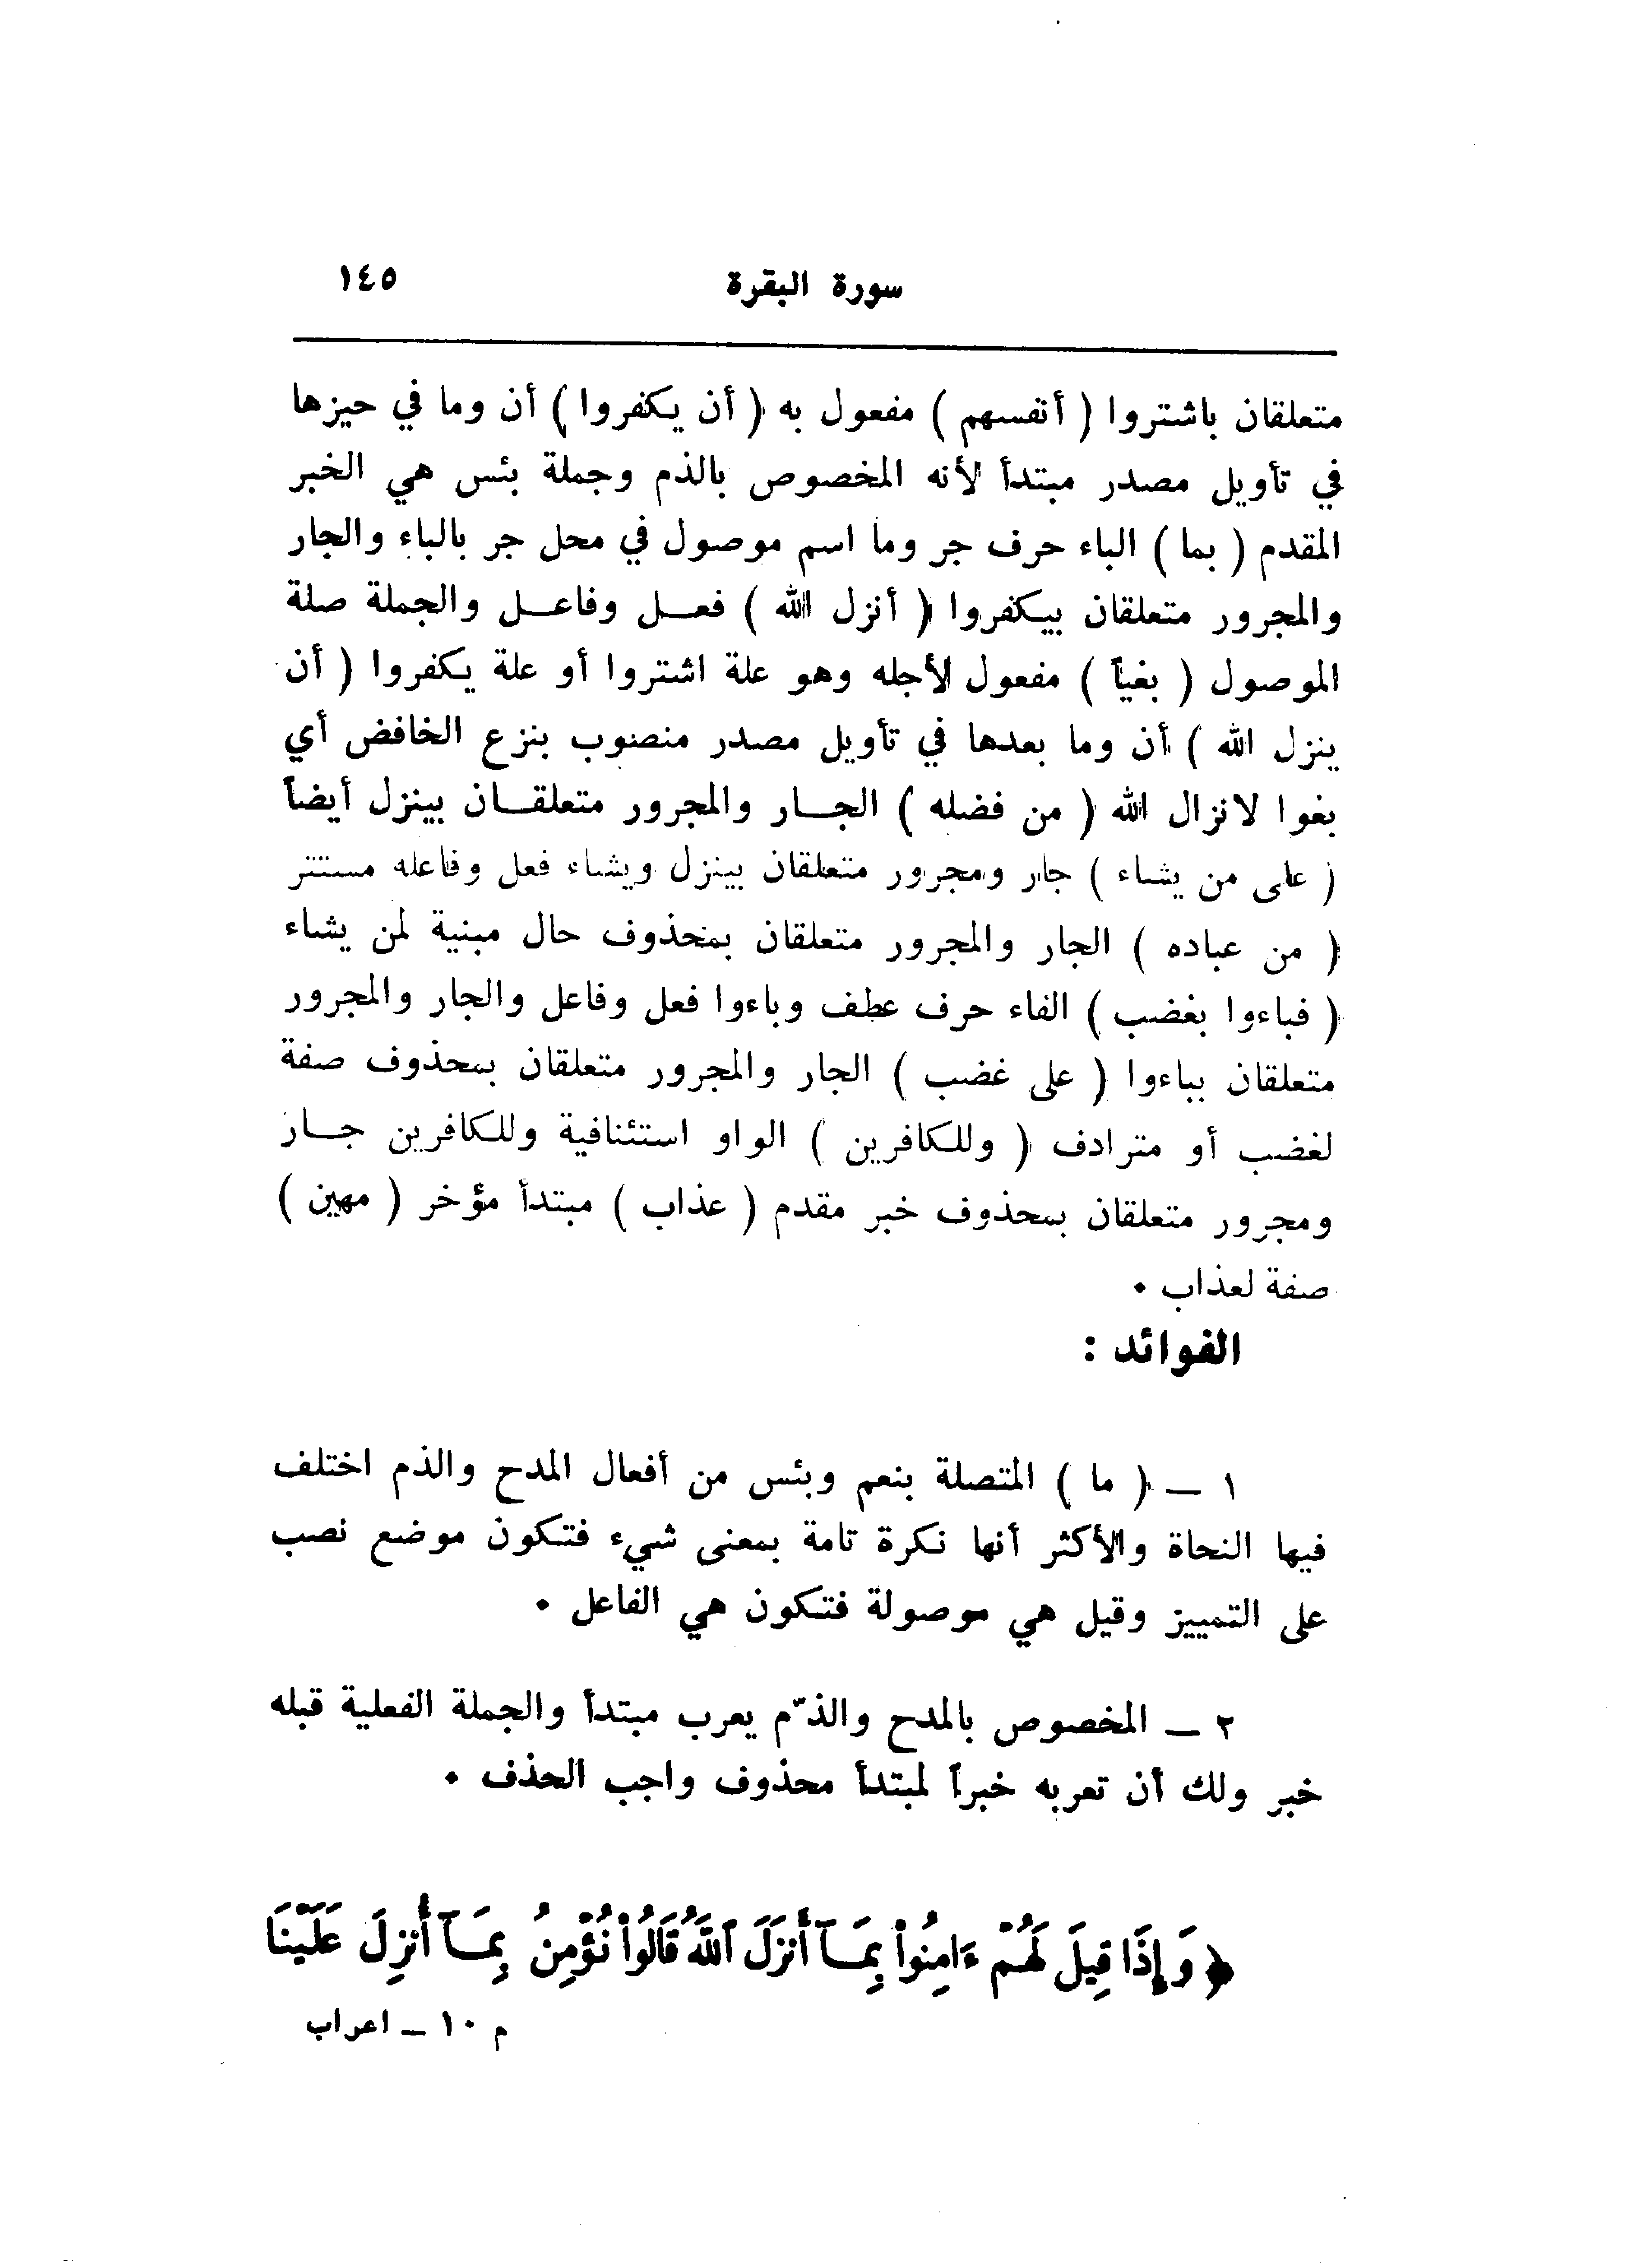 سورة البقرة ١٤٥
متعلقان باشتروا ( أنفسهم ) مفعول به ( أن يكفروا ) أن وما في حيزها
في تأويل مصدر مبتدأ لأنه المخصوص بالذم وجملة بئس هي الخبر
المقدم ( بما ) الباء حرف جر وما اسم موصول في محل جر بالباء والجار
والمجرور متعلقان بيكفروا ( أنزل الله ) فعــل وفاعــل والجملة صلة
الموصول ( بغياً ) مفعول لأجله وهو علة اشتروا أو علة يكفروا ( أن
ينزل الله ) أن وما بعدها في تأويل مصدر منصوب بنزع الخافض أي
بغوا لانزال الله ( من فضله ) الجــار والمجرور متعلقــان بينزل أيضاً
( على من يشاء ) جار ومجرور متعلقان بينزل ويشاء فعل وفاعله مستتر
( من عباده ) الجار والمجرور متعلقان بمحذوف حال مبنية لمن يشاء
( فباءوا بغضب ) الفاء حرف عطف وباءوا فعل وفاعل والجار والمجرور
متعلقان بباءوا ( على غضب ) الجار والمجرور متعلقان بمحذوف صفة
لغضب أو مترادف ( وللكافرين ) الواو استئنافية وللكافرين جــار
ومجرور متعلقان بمحذوف خبر مقدم ( عذاب ) مبتدأ مؤخر ( مهين )
صفة لعذاب ٠
الفوائد :
١ – ( ما ) المتصلة بنعم وبئس من أفعال المدح والذم اختلف
فيها النحاة والأكثر أنها نكرة تامة بمعنى شيء فتكون موضع نصب
على التمييز وقيل هي موصولة فتكون هي الفاعل ٠
٢ – المخصوص بالمدح والذّم يعرب مبتدأ والجملة الفعلية قبله
خبر ولك أن تعربه خبراً لمبتدأ محذوف واجب الحذف ٠
﴿ وَإِذَا قِيلَ لَهُمْ ءَامِنُواْ بِمَآ أَنزَلَ ٱللَّهُ قَالُواْ نُؤْمِنُ بِمَآ أُنزِلَ عَلَيْنَا
م ١٠ – اعراب